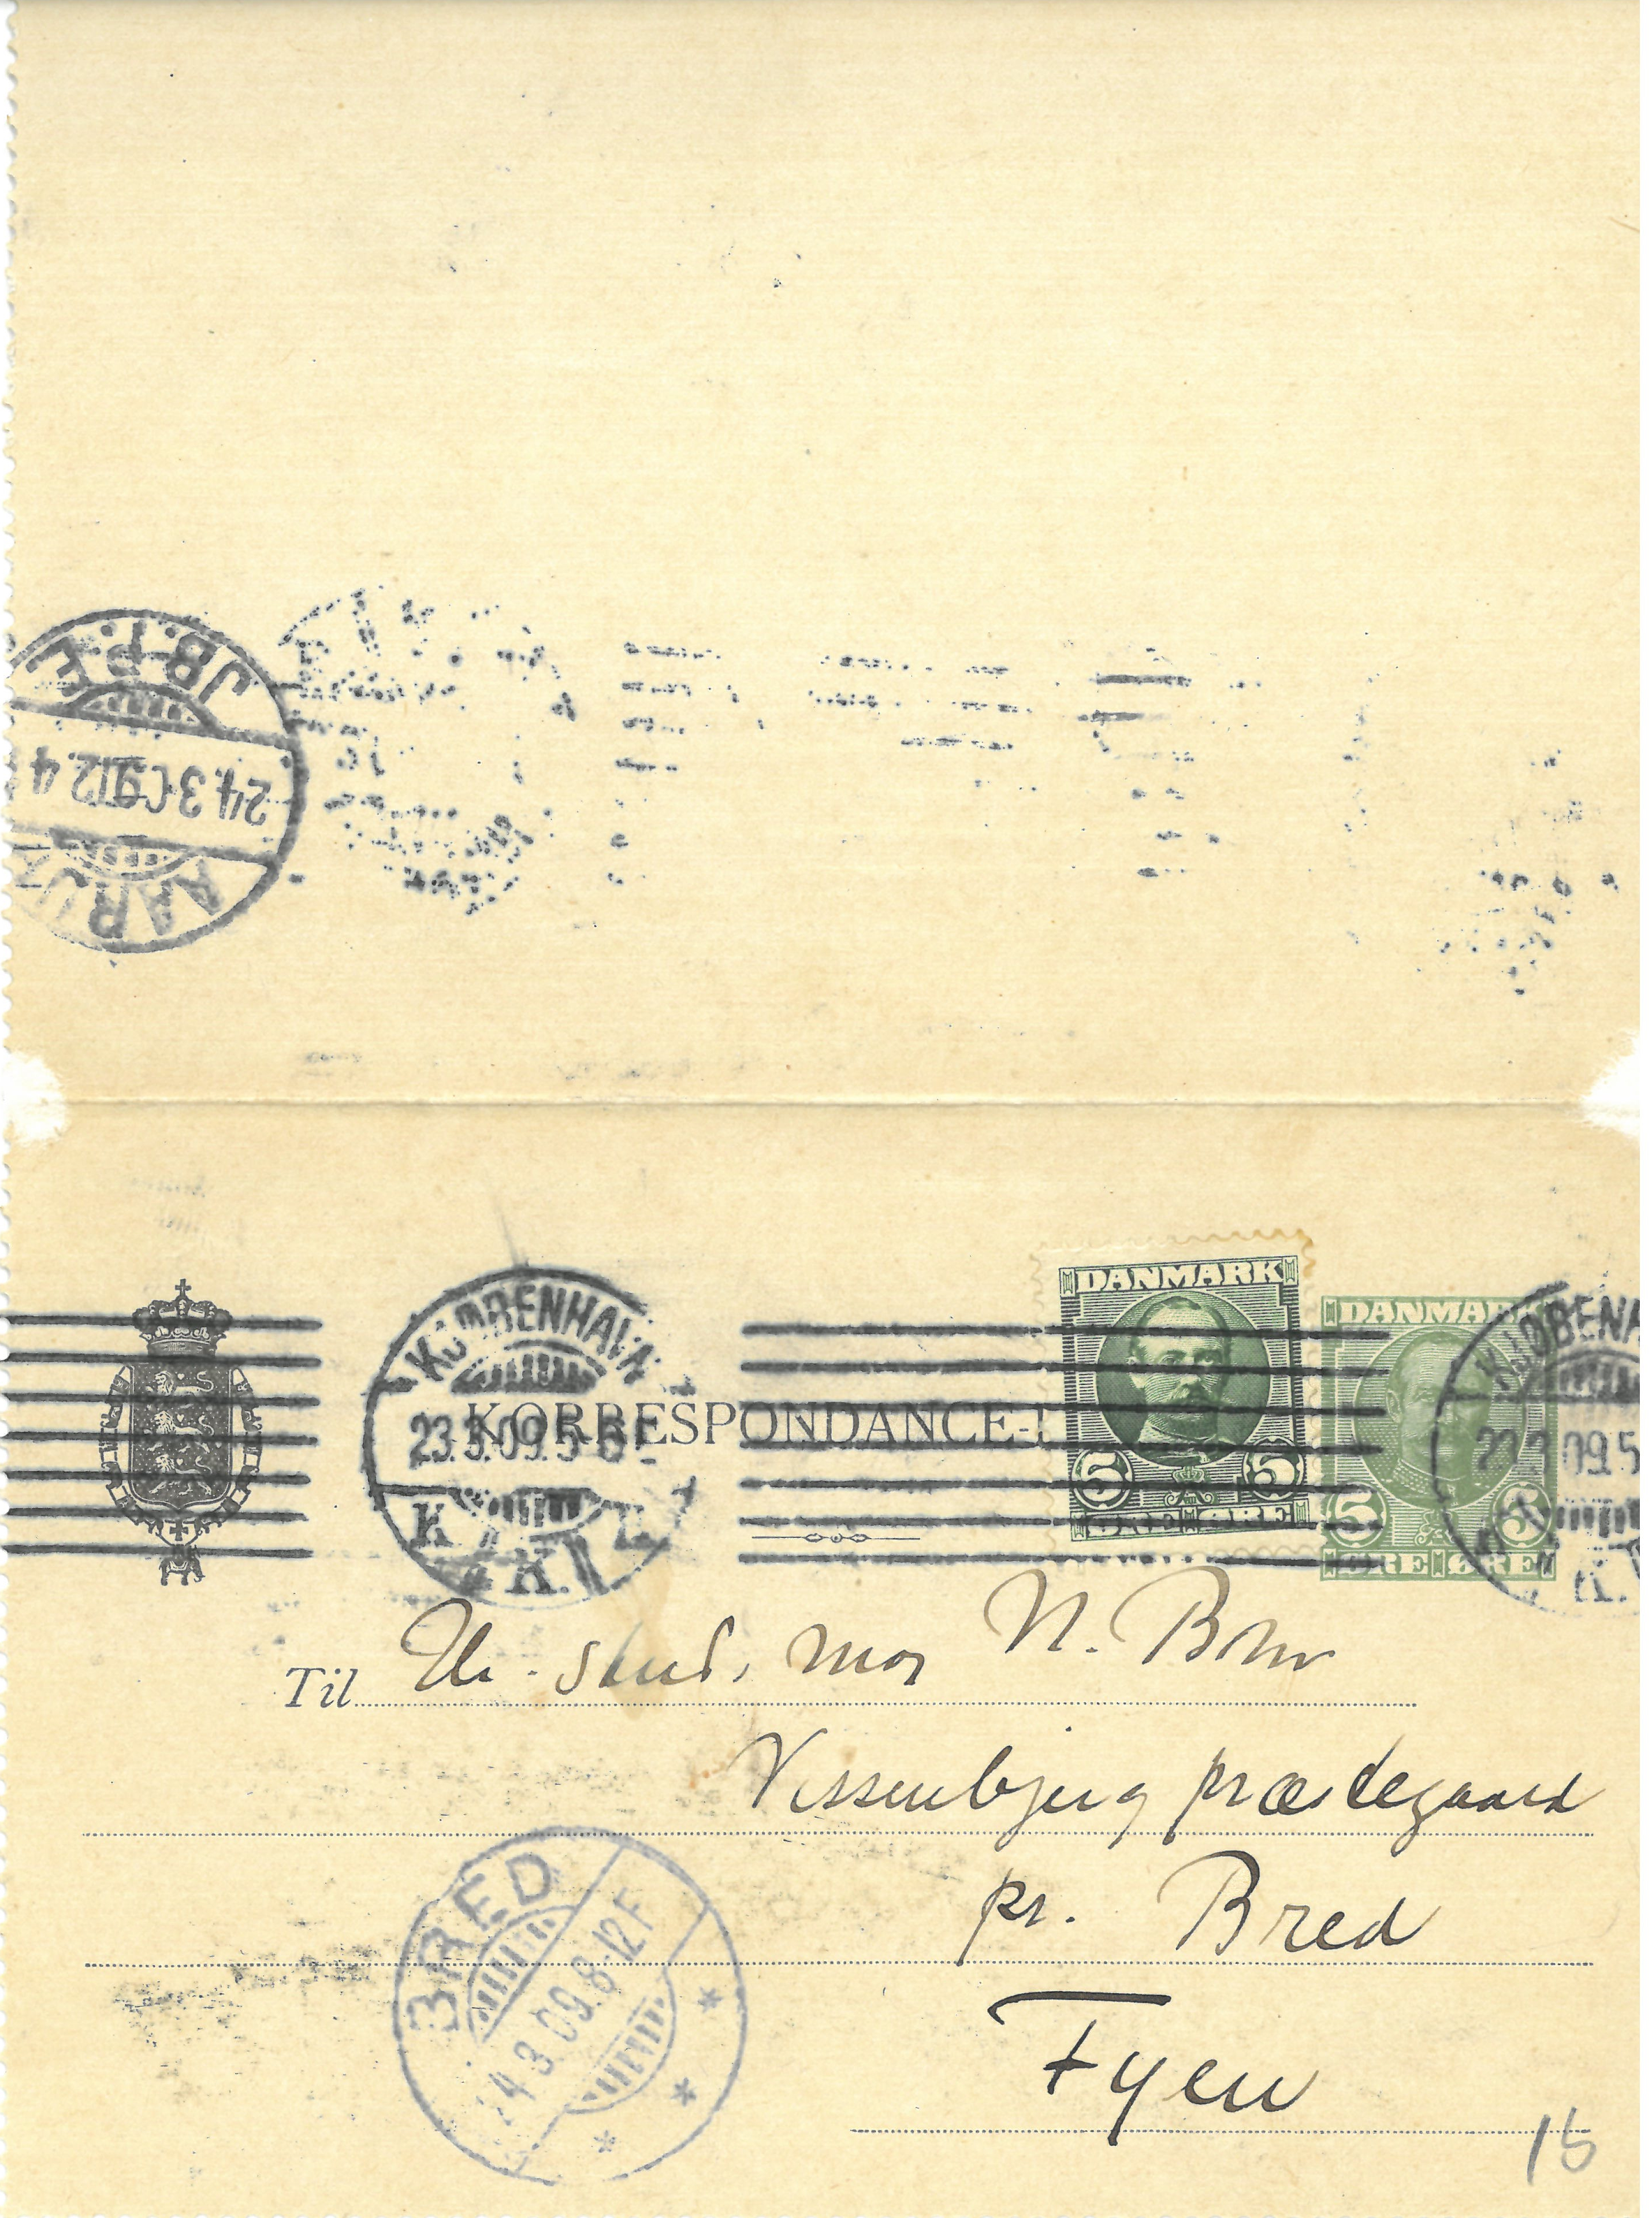 J.B.P.E.
24.3 09 12.4
AARU
KJØBENHAVN
23.3.09.5-6E
K. K.
KORRESPONDANCE-
DANMARK
5 5
ØRE ØRE
DANMARK
5 5
ØRE ØRE
KJØBENHA
09.5
K.
Til Hr. stud. mag N. Bohr
Vissenbjerg præstegaard
pr. Bred
Fyen
BRED
24.3.09.8-12F
16